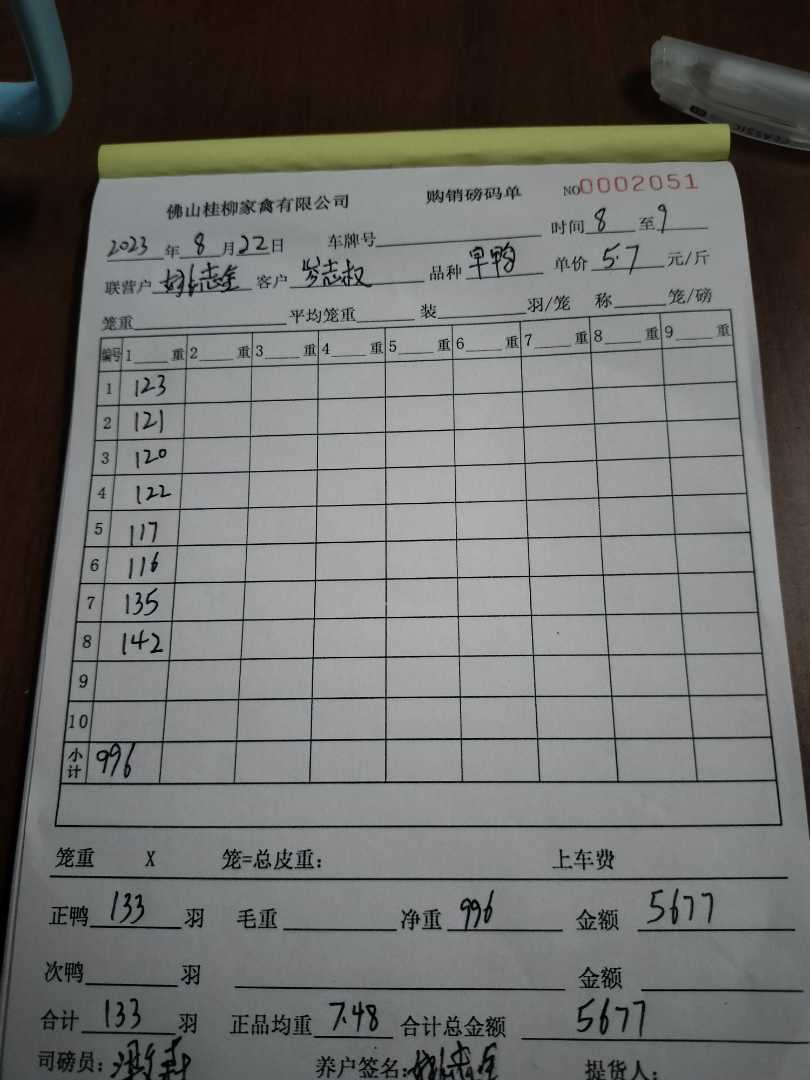 佛山桂柳家禽有限公司 购销磅码单 NO0002051
2023年8月22日 车牌号 时间8至9
联营户 志全 客户 岑志权 品种 早鸭 单价 5.7 元/斤
笼重 平均笼重 装 羽/笼 称 笼/磅
编号 1 重 2 重 3 重 4 重 5 重 6 重 7 重 8 重 9 重
1 123
2 121
3 120
4 122
5 117
6 116
7 135
8 142
9
10
小计 996
笼重 X 笼=总皮重: 上车费
正鸭 133 羽 毛重 净重 996 金额 5677
次鸭 羽 金额
合计 133 羽 正品均重 7.48 合计总金额 5677
司磅员: 养户签名: 志全 提货人: